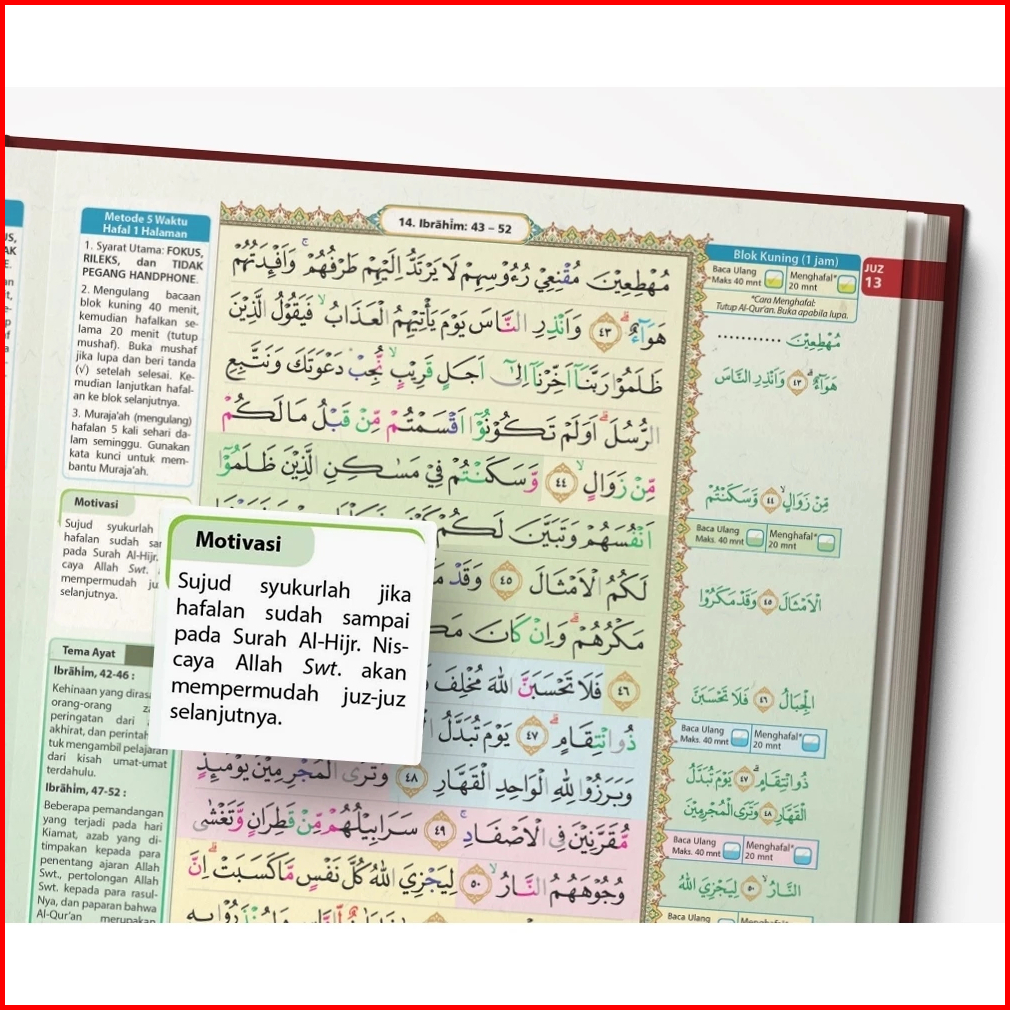 14. Ibrāhīm: 43 – 52
JUZ
13
Metode 5 Waktu
Hafal 1 Halaman
1. Syarat Utama: FOKUS,
RILEKS, dan TIDAK
PEGANG HANDPHONE.
2. Mengulang bacaan
blok kuning 40 menit,
kemudian hafalkan se-
lama 20 menit (tutup
mushaf). Buka mushaf
jika lupa dan beri tanda
(√) setelah selesai. Ke-
mudian lanjutkan hafal-
an ke blok selanjutnya.
3. Muraja'ah (mengulang)
hafalan 5 kali sehari da-
lam seminggu. Gunakan
kata kunci untuk mem-
bantu Muraja'ah.
Motivasi
Sujud syukurlah
hafalan sudah
pada Surah Al-Hijr.
caya Allah Swt.
mempermudah
selanjutnya.
Motivasi
Sujud syukurlah jika
hafalan sudah sampai
pada Surah Al-Hijr. Nis-
caya Allah Swt. akan
mempermudah juz-juz
selanjutnya.
Tema Ayat
Ibrāhīm, 42-46 :
Kehinaan yang
orang-orang
peringatan dari
akhirat, dan
tuk mengambil pelajaran
dari kisah umat-umat
terdahulu.
Ibrāhīm, 47-52 :
Beberapa pemandangan
yang terjadi pada hari
Kiamat, azab yang di-
timpakan kepada para
penentang ajaran Allah
Swt., pertolongan Allah
Swt. kepada para rasul-
Nya, dan paparan bahwa
Al-Qur'an merupakan
مُهْطِعِيْنَ مُقْنِعِيْ رُءُوْسِهِمْ لَا يَرْتَدُّ اِلَيْهِمْ طَرْفُهُمْ ۚ وَاَفْـِٕدَتُهُمْ
هَوَاۤءٌ ۗ ٤٣ وَاَنْذِرِ النَّاسَ يَوْمَ يَأْتِيْهِمُ الْعَذَابُ ۙ فَيَقُوْلُ الَّذِيْنَ
ظَلَمُوْا رَبَّنَآ اَخِّرْنَآ اِلٰٓى اَجَلٍ قَرِيْبٍ ۙ نُّجِبْ دَعْوَتَكَ وَنَتَّبِعِ
الرُّسُلَ ۗ اَوَلَمْ تَكُوْنُوْٓا اَقْسَمْتُمْ مِّنْ قَبْلُ مَا لَكُمْ
مِّنْ زَوَالٍ ۙ ٤٤ وَّسَكَنْتُمْ فِيْ مَسٰكِنِ الَّذِيْنَ ظَلَمُوْٓا
اَنْفُسَهُمْ وَتَبَيَّنَ لَكُمْ
لَكُمُ الْاَمْثَالَ ٤٥ وَقَدْ
مَكْرُهُمْ ۗ وَاِنْ كَانَ
٤٦ فَلَا تَحْسَبَنَّ اللّٰهَ مُخْلِفَ
ذُو انْتِقَامٍ ۗ ٤٧ يَوْمَ تُبَدَّلُ
وَبَرَزُوْا لِلّٰهِ الْوَاحِدِ الْقَهَّارِ ٤٨ وَتَرَى الْمُجْرِمِيْنَ يَوْمَىِٕذٍ
مُّقَرَّنِيْنَ فِى الْاَصْفَادِ ۚ ٤٩ سَرَابِيْلُهُمْ مِّنْ قَطِرَانٍ وَّتَغْشٰى
وُجُوْهَهُمُ النَّارُ ۙ ٥٠ لِيَجْزِيَ اللّٰهُ كُلَّ نَفْسٍ مَّا كَسَبَتْ ۗ اِنَّ
Blok Kuning (1 jam)
Baca Ulang
Maks 40 mnt
Menghafal*
20 mnt
*Cara Menghafal:
Tutup Al-Qur'an. Buka apabila lupa.
مُهْطِعِيْنَ ...........
هَوَاۤءٌ ۗ ٤٣ وَاَنْذِرِ النَّاسَ
مِّنْ زَوَالٍ ۙ ٤٤ وَّسَكَنْتُمْ
Baca Ulang
Maks. 40 mnt
Menghafal*
20 mnt
الْاَمْثَالَ ٤٥ وَقَدْ مَكَرُوْا
الْجِبَالُ ٤٦ فَلَا تَحْسَبَنَّ
Baca Ulang
Maks. 40 mnt
Menghafal*
20 mnt
ذُو انْتِقَامٍ ۗ ٤٧ يَوْمَ تُبَدَّلُ
الْقَهَّارِ ٤٨ وَتَرَى الْمُجْرِمِيْنَ
Baca Ulang
Maks. 40 mnt
Menghafal*
20 mnt
النَّارُ ۙ ٥٠ لِيَجْزِيَ اللّٰهُ
Baca Ulang
Menghafal*